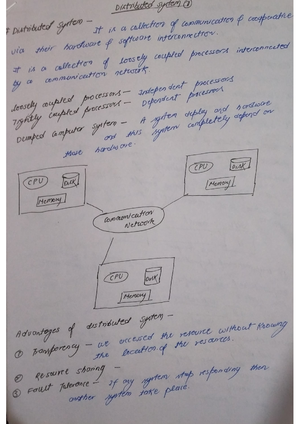 Distributed system
* Distributed system -
It is a collection of communication & cooperative
via their hardware & software interconnection.
It is a collection of loosely coupled processors interconnected
by a communication network.
Loosely coupled processors - Independent processors
Tightly coupled processors - Dependent processors
Dumped computer system - A system deploy and hardware
and this system completely depend on
those hardware.
CPU
Disk
Memory
CPU
Disk
Memory
Communication
Network
CPU
Disk
Memory
Advantages of distributed system -
① Tranferency - we accessed the resource without knowing
the location of the resources.
② Resource sharing -
③ Fault Tolerence - If any system stop responding then
another system take place.